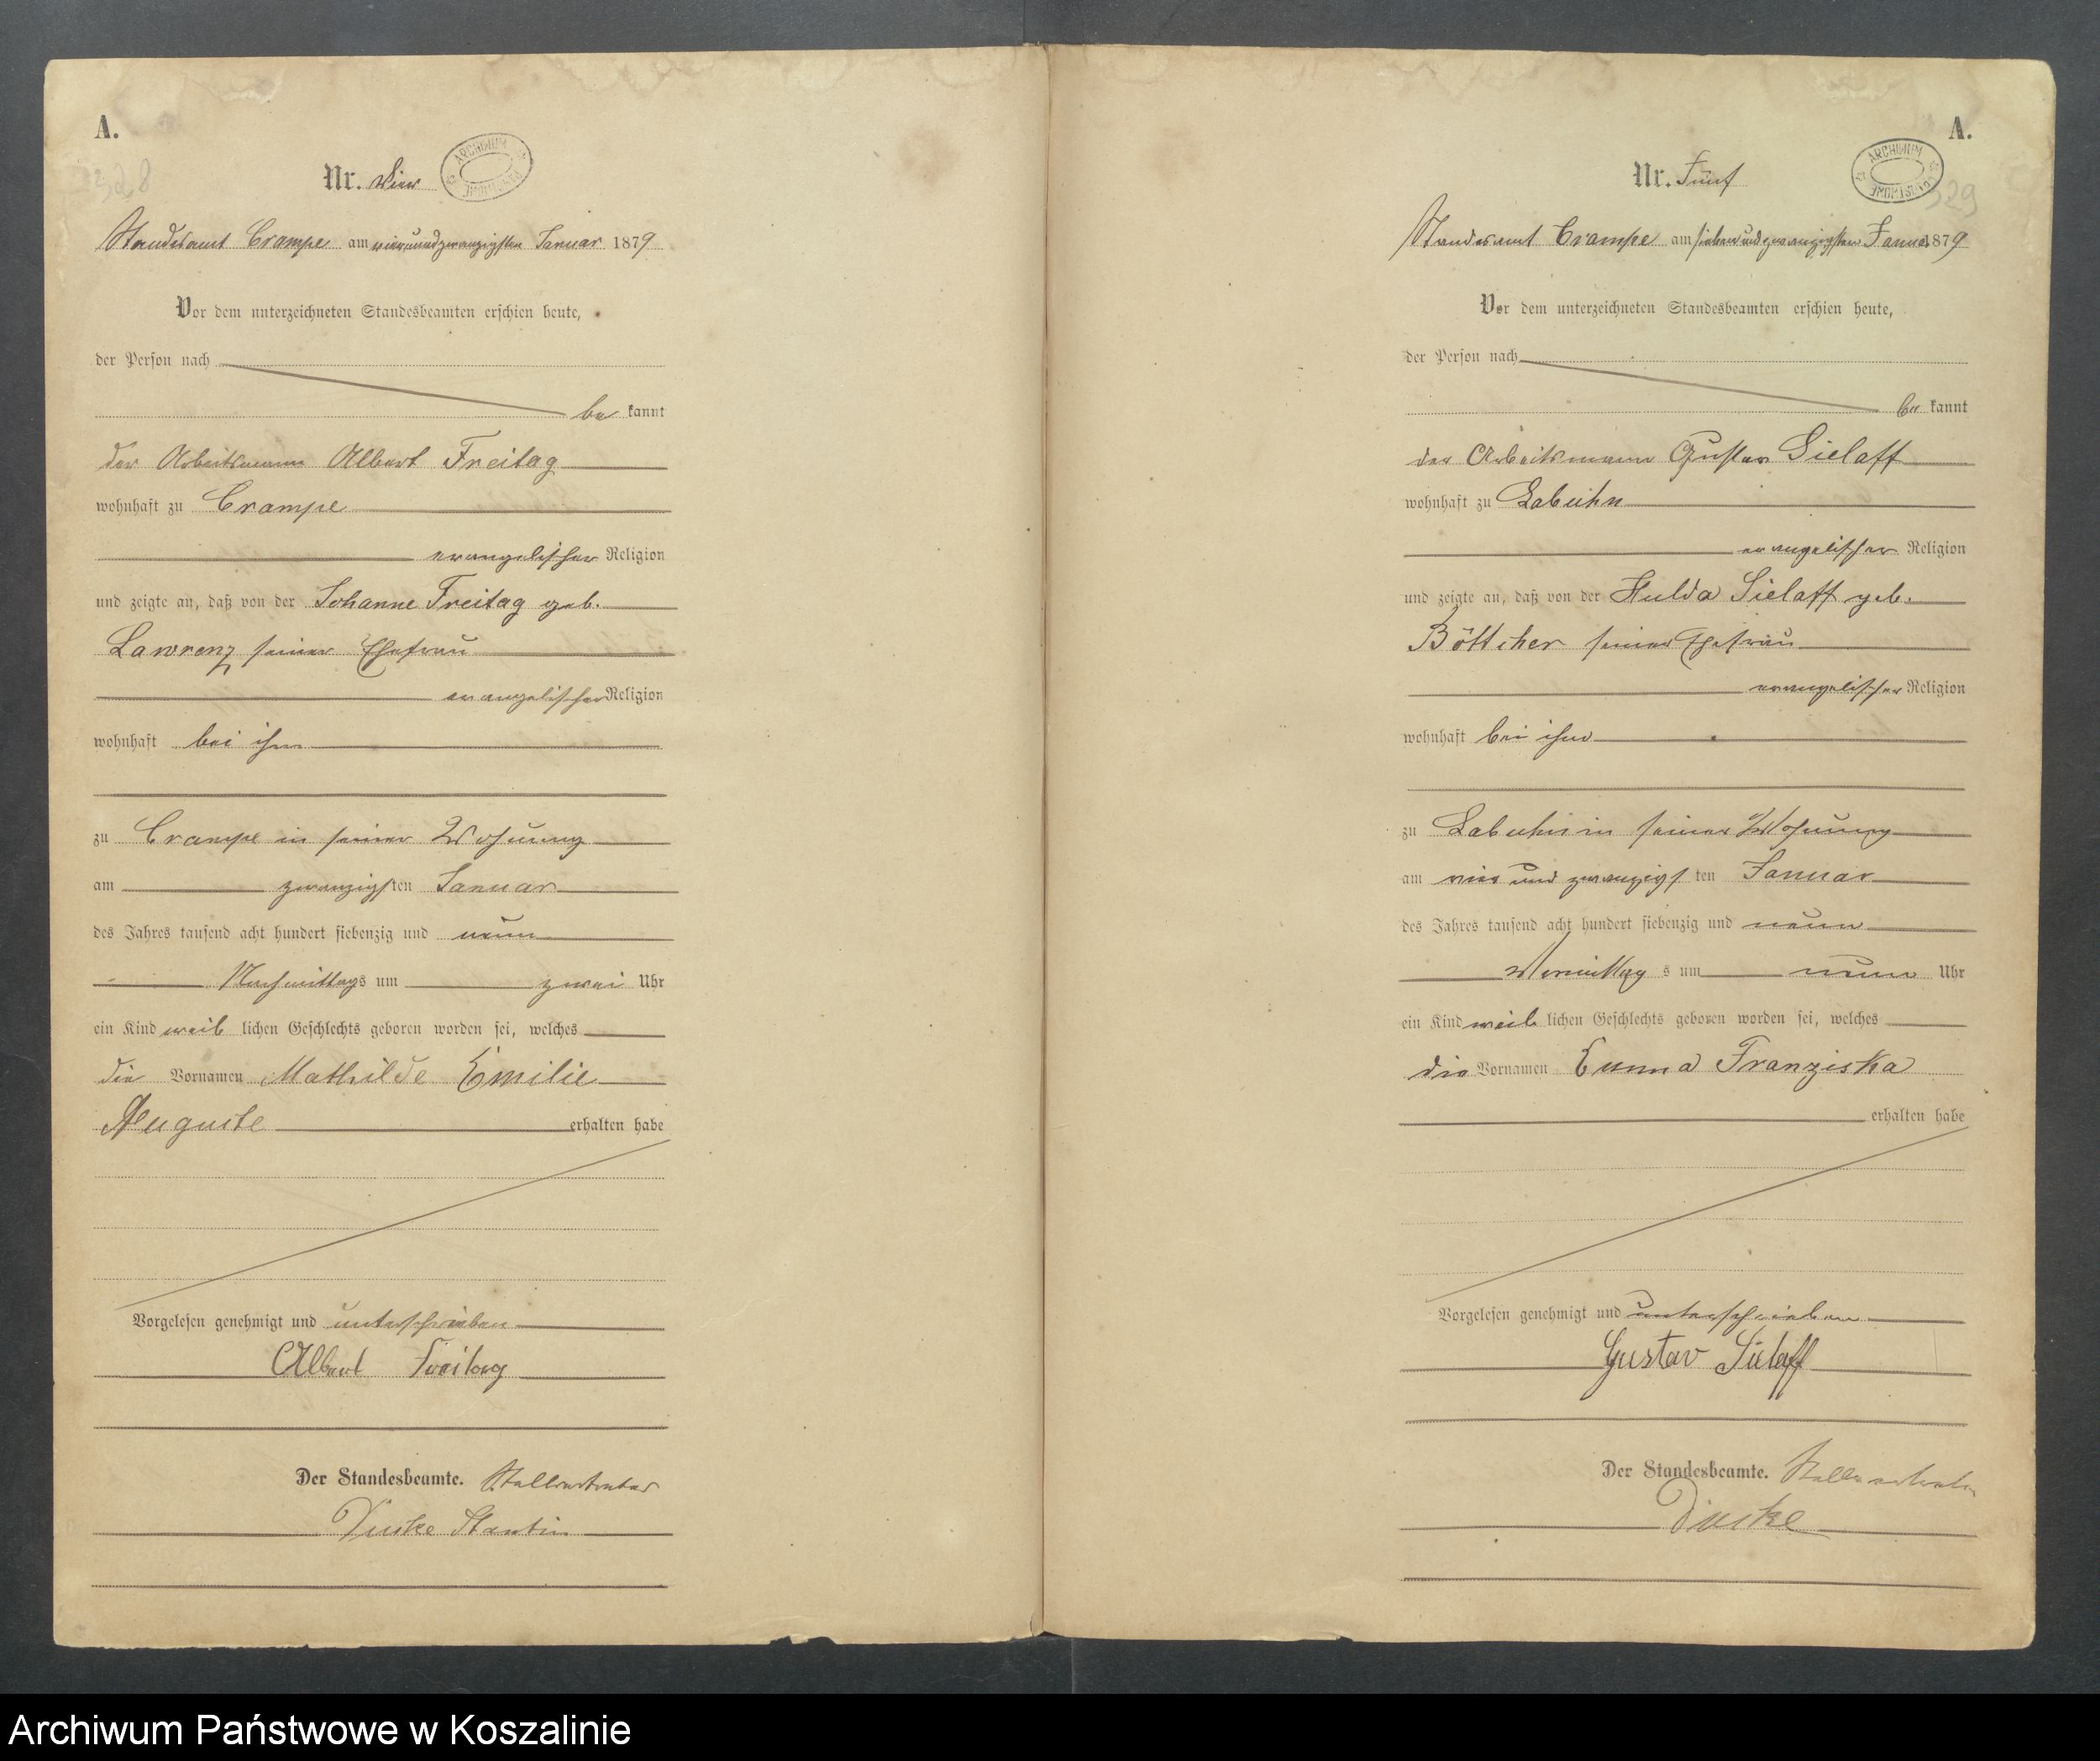 A.
328
Nr. Vier
ARCHIWUM PAŃSTWOWE
Standesamt Crampe am vierundzwanzigsten Januar 1879
Vor dem unterzeichneten Standesbeamten erschien heute,
der Person nach
bekannt
der Arbeitsmann Albert Freitag
wohnhaft zu Crampe
evangelischer Religion
und zeigte an, daß von der Johanne Freitag geb.
Lawrenz seiner Ehefrau
evangelischer Religion
wohnhaft bei ihm
zu Crampe in seiner Wohnung
am zwanzigsten Januar
des Jahres tausend acht hundert siebenzig und neun
Nachmittags um zwei Uhr
ein Kind weiblichen Geschlechts geboren worden sei, welches
die Vornamen Mathilde Emilie
Auguste erhalten habe
Vorgelesen genehmigt und unterschrieben
Albert Freitag
Der Standesbeamte. Stellvertreter
A.
329
Nr. Fünf
ARCHIWUM PAŃSTWOWE
Standesamt Crampe am siebenundzwanzigsten Januar 1879
Vor dem unterzeichneten Standesbeamten erschien heute,
der Person nach
bekannt
der Arbeitsmann Gustav Sielaff
wohnhaft zu Labuhn
evangelischer Religion
und zeigte an, daß von der Hulda Sielaff geb.
Böttcher seiner Ehefrau
evangelischer Religion
wohnhaft bei ihm
zu Labuhn in seiner Wohnung
am vier und zwanzigsten Januar
des Jahres tausend acht hundert siebenzig und neun
Vormittags um neun Uhr
ein Kind weiblichen Geschlechts geboren worden sei, welches
die Vornamen Emma Franziska
erhalten habe
Vorgelesen genehmigt und unterschrieben
Gustav Sielaff
Der Standesbeamte. Stellvertreter
Archiwum Państwowe w Koszalinie